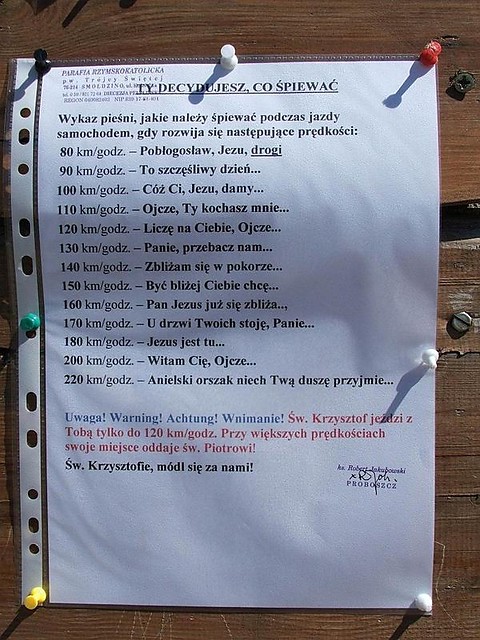 PARAFIA RZYMSKOKATOLICKA
p.w. Trójcy Świętej
76-214 SMOŁDZINO, ul.
TY DECYDUJESZ, CO ŚPIEWAĆ
Wykaz pieśni, jakie należy śpiewać podczas jazdy
samochodem, gdy rozwija się następujące prędkości:
80 km/godz. – Pobłogosław, Jezu, drogi
90 km/godz. – To szczęśliwy dzień...
100 km/godz. – Cóż Ci, Jezu, damy...
110 km/godz. – Ojcze, Ty kochasz mnie...
120 km/godz. – Liczę na Ciebie, Ojcze...
130 km/godz. – Panie, przebacz nam...
140 km/godz. – Zbliżam się w pokorze...
150 km/godz. – Być bliżej Ciebie chcę...
160 km/godz. – Pan Jezus już się zbliża..,
170 km/godz. – U drzwi Twoich stoję, Panie...
180 km/godz. – Jezus jest tu...
200 km/godz. – Witam Cię, Ojcze...
220 km/godz. – Anielski orszak niech Twą duszę przyjmie...
Uwaga! Warning! Achtung! Wnimanie! Św. Krzysztof jeździ z
Tobą tylko do 120 km/godz. Przy większych prędkościach
swoje miejsce oddaje św. Piotrowi!
Św. Krzysztofie, módl się za nami!
ks. Robert Jakubowski
PROBOSZCZ